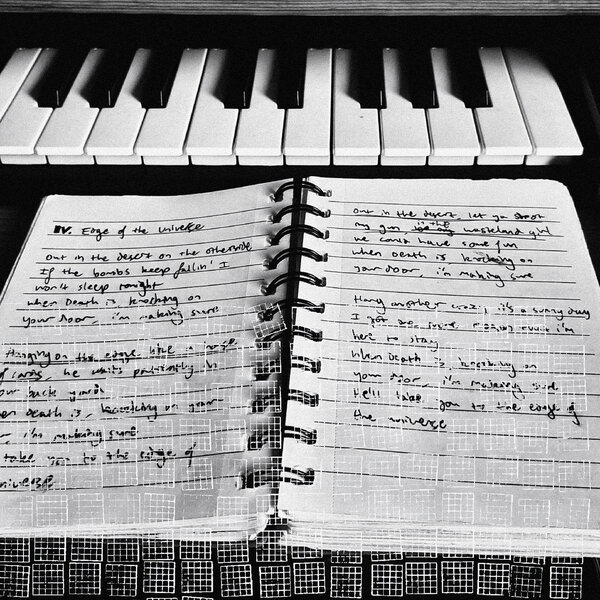 IV. Edge of the Universe
Out in the desert on the otherside
If the bombs keep fallin' I
won't sleep tonight
When Death is knocking on
your door, i'm making sure
Hanging on the edge like a
of cards, he waits patiently in
your back yard
Death is knocking on your
i'm making sure
take you to the edge of
universe
Out in the desert, let ya shoot
my gun in the wasteland girl
we could have some fun
When Death is knocking on
your door, i'm making sure
Hang another crazy, it's a sunny day
I got i'm
here to stay
When Death is knocking on
your door, i'm making sure
He'll take you to the edge of
the universe